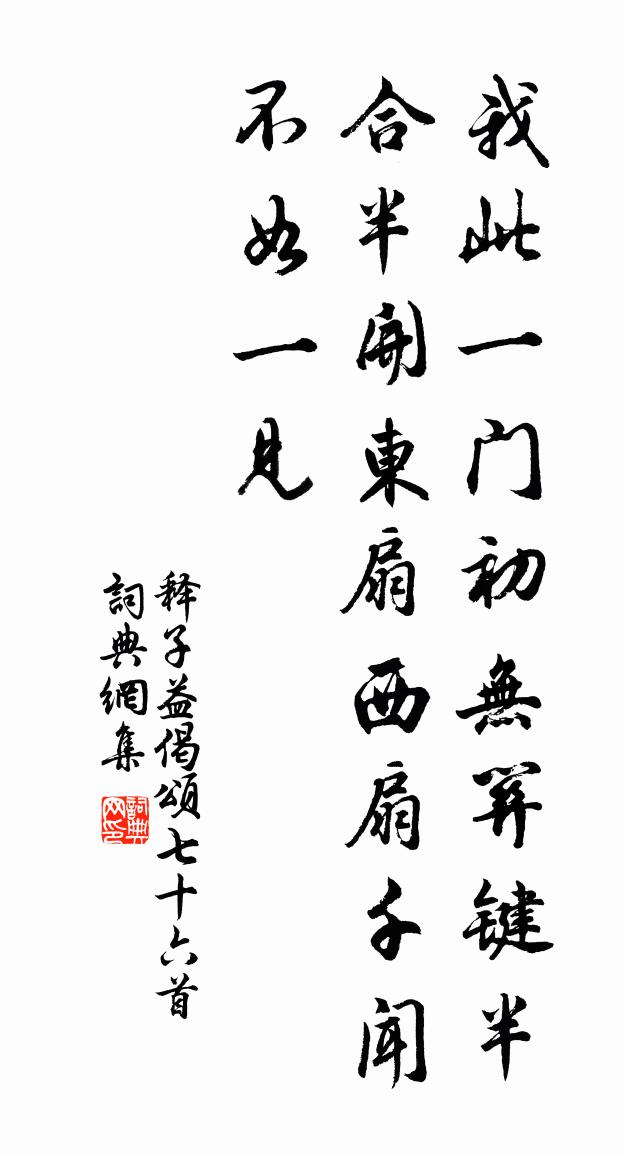 我此一门初無関键半
合半開東扇西扇千聞
不如一見
释子益偈頌七十六首
詞典網集
詞典网印